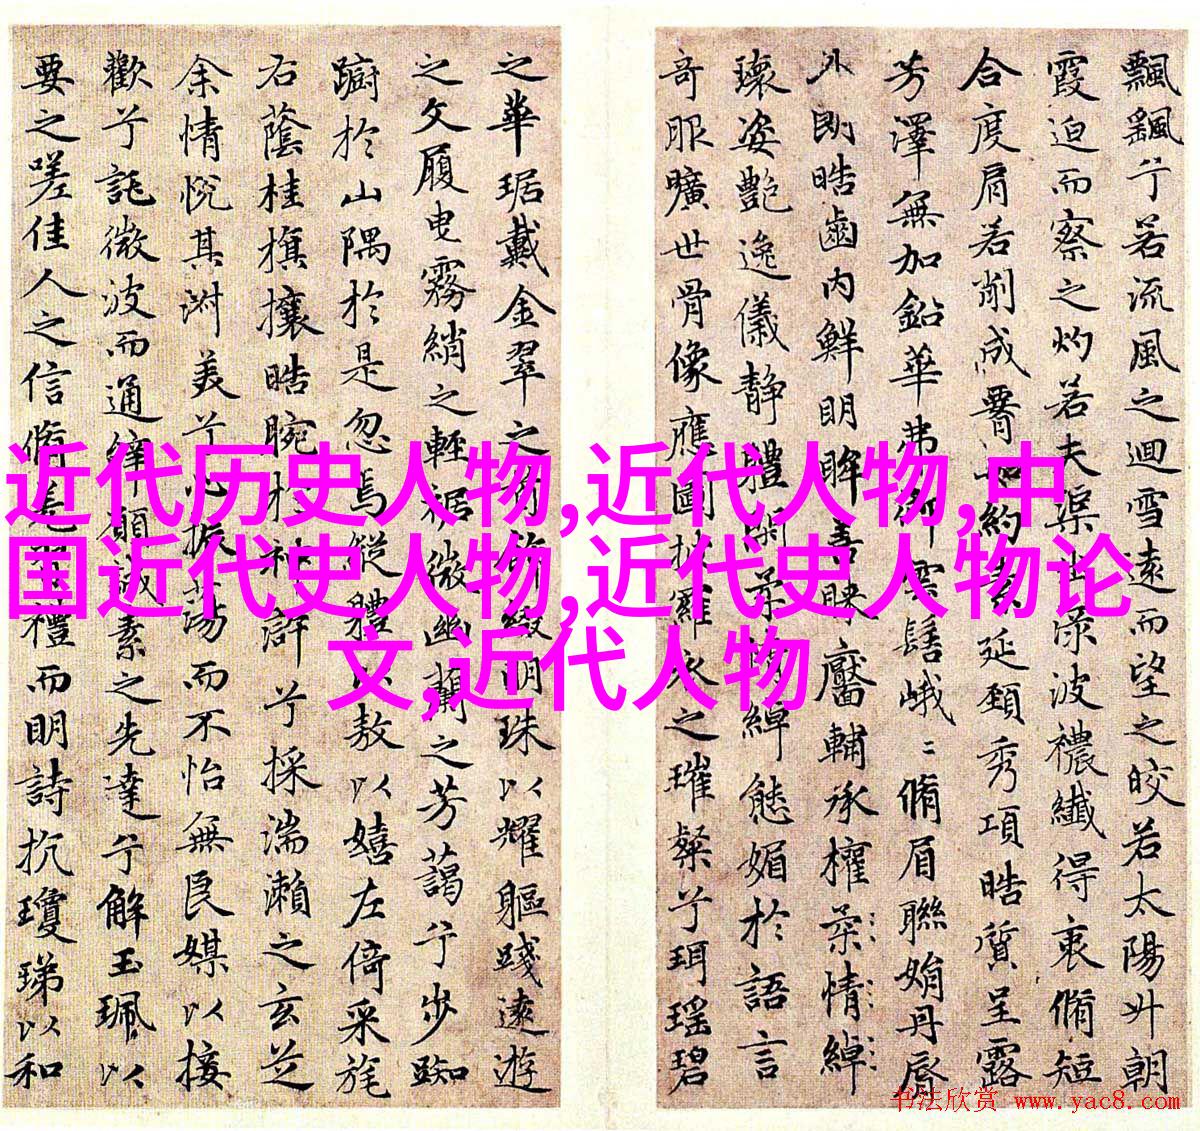 飄颻兮若流風之迴雪遠而望之皎若太陽升朝
霞迫而察之灼若夫渠出淥波襛纖得衷脩短
合度肩若削成約素延頸秀項皓質呈露
芳澤無加鉛華弗御雲髻峨〻脩眉聯娟丹脣
外朗皓齒內鮮明眸善睞靨輔承權柔情綽
瓌姿艷逸儀靜體閑柔情綽態媚於語言
奇服曠世骨像應圖披羅衣之璀粲兮珥瑤碧
之華琚戴金翠之首飾綴明珠以耀軀踐遠遊
之文履曳霧綃之輕裾微幽蘭之芳藹兮步踟
躕於山隅於是忽焉縱體以敖以嬉左倚采旄
右蔭桂旗攘皓腕於神滸兮採湍瀨之玄芝
余情悅其淑美兮心振蕩而不怡無良媒以接
歡兮託微波而通辭願誠素之先達兮解玉珮以
要之嗟佳人之信脩羌習禮而明詩抗瓊珶以和
近代历史人物,近代人物,中
国近代史人物,近代史人物论
文,近代人物
书法欣赏 www.yac8.com